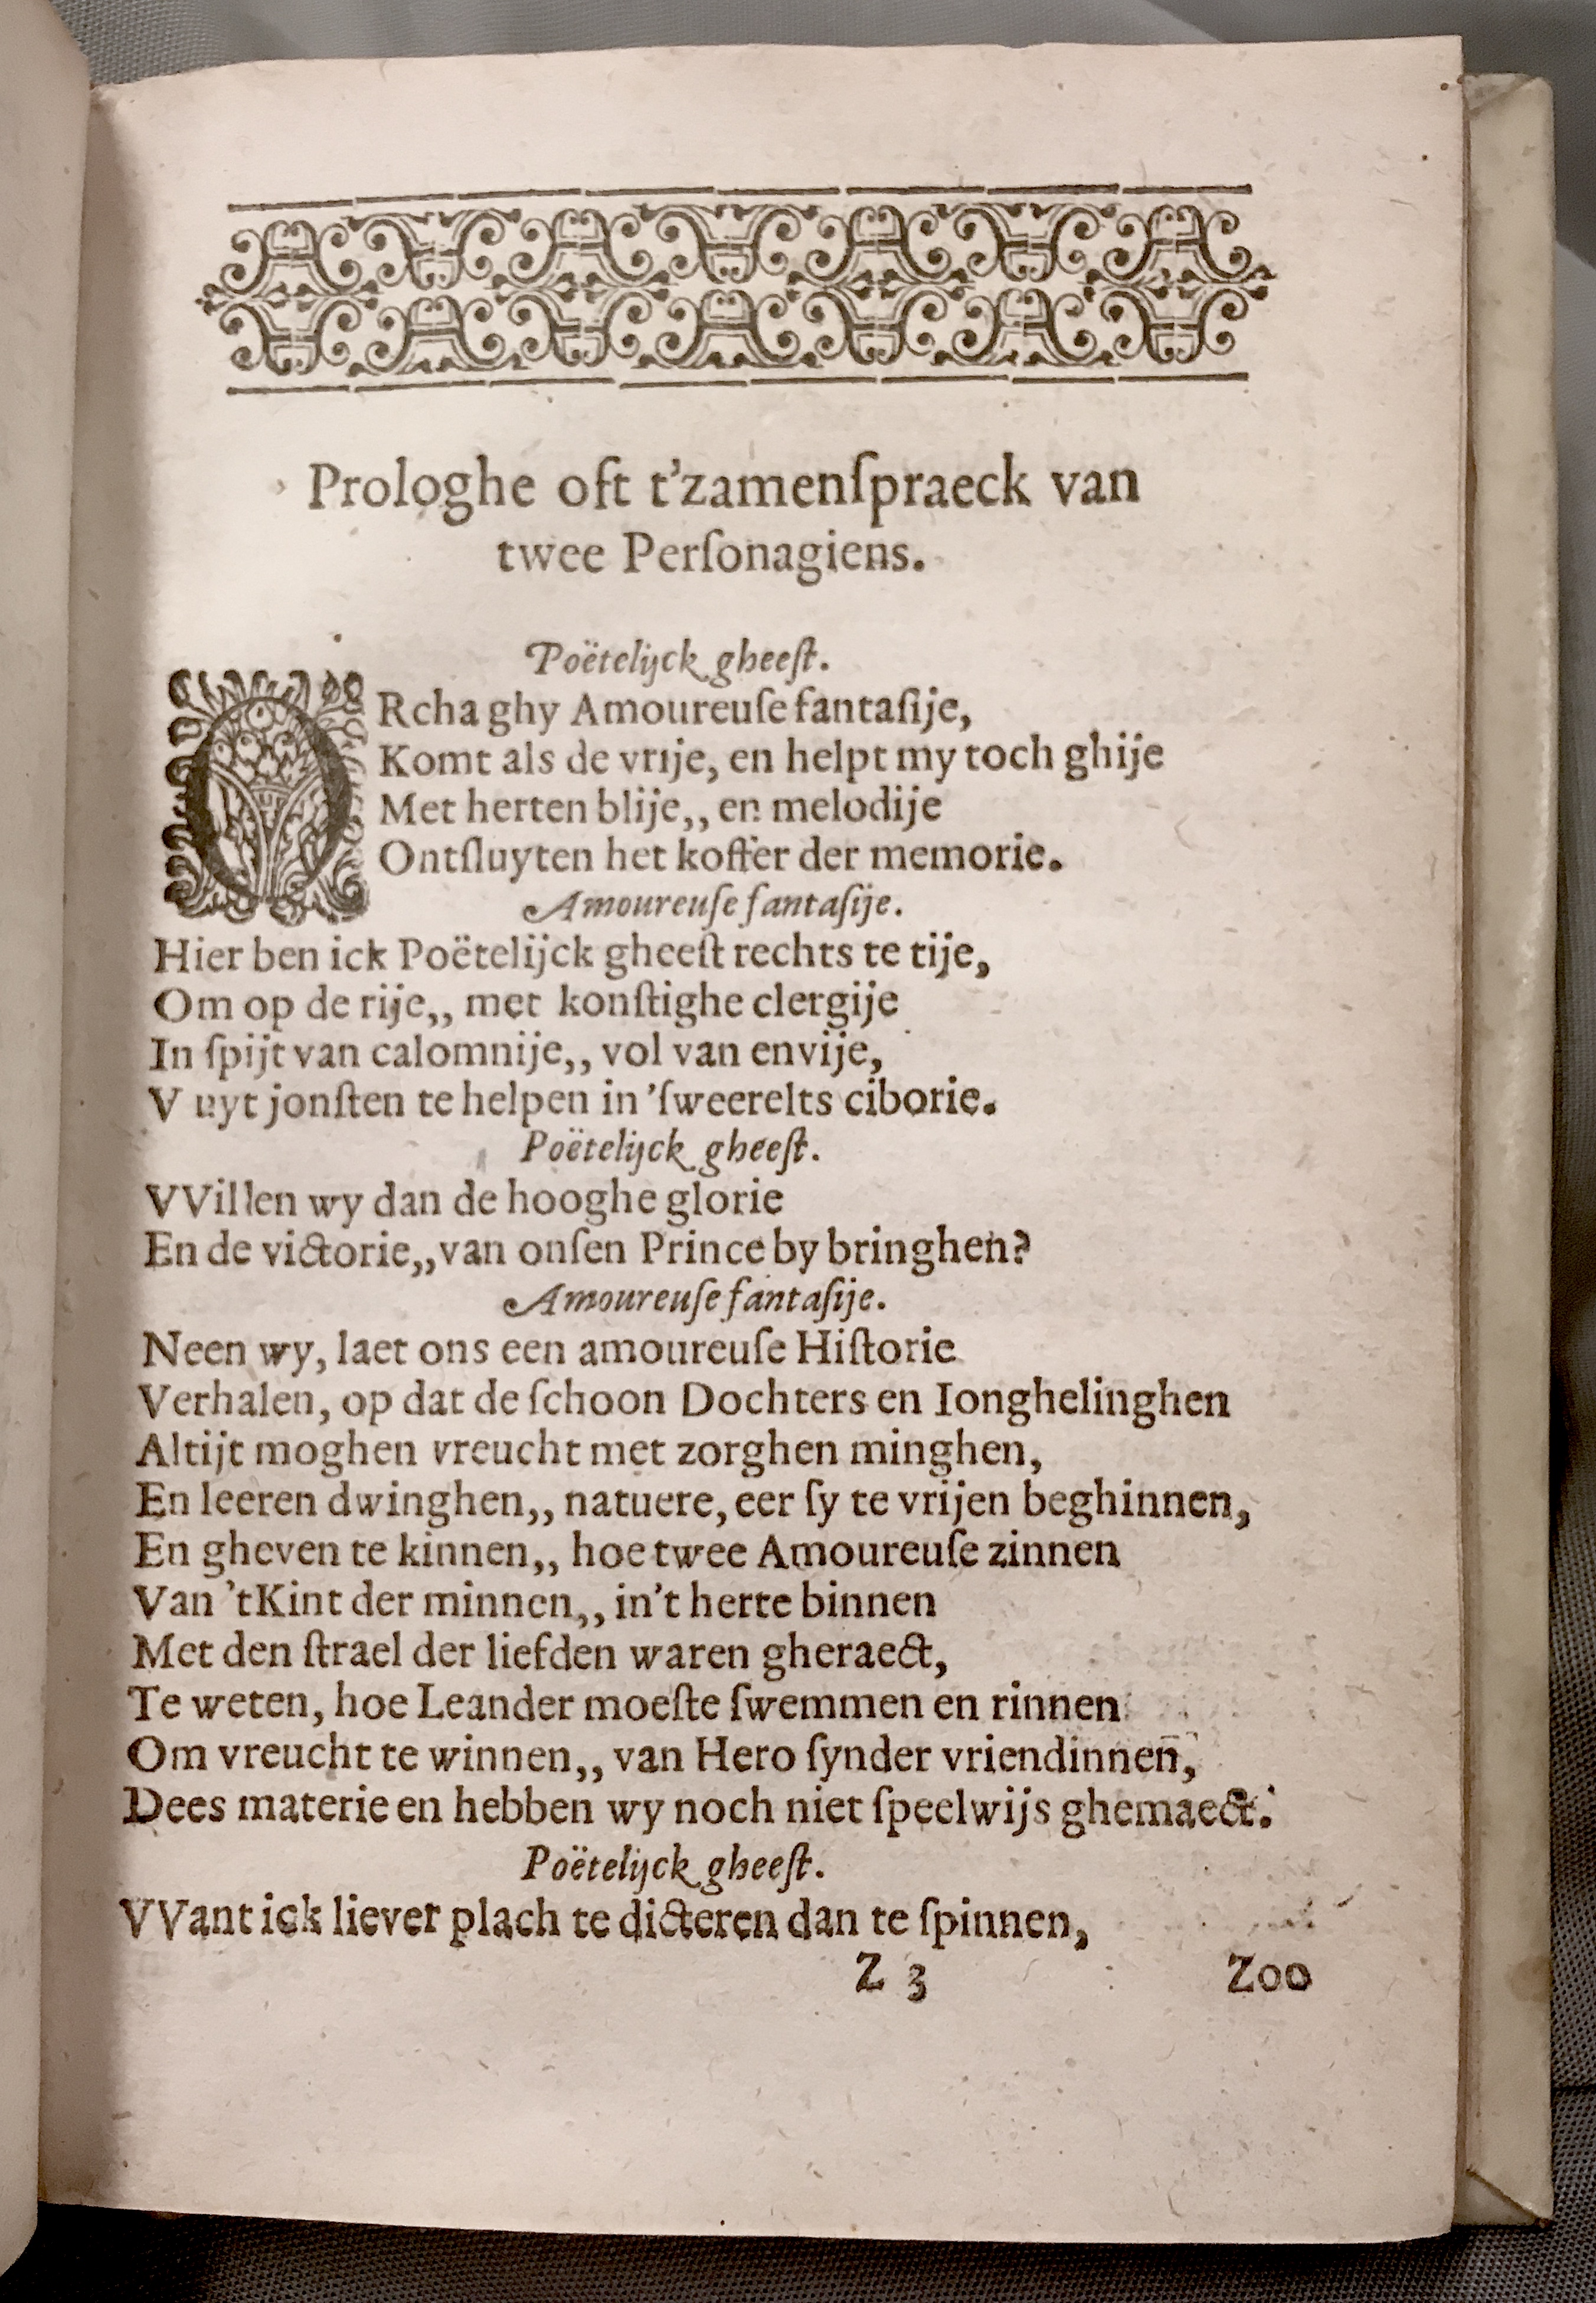 Prologhe oft t'zamenſpraeck van
twee Perſonagiens.
Poëtelijck gheeſt.
ORcha ghy Amoureuſe fantaſije,
Komt als de vrije, en helpt my toch ghije
Met herten blije,, en melodije
Ontſluyten het koffer der memorie.
Amoureuſe fantaſije.
Hier ben ick Poëtelijck gheeſt rechts te tije,
Om op de rije,, met konſtighe clergije
In ſpijt van calomnije,, vol van envije,
V uyt jonſten te helpen in 'ſweerelts ciborie.
Poëtelijck gheeſt.
VVillen wy dan de hooghe glorie
En de victorie,, van onſen Prince by bringhen?
Amoureuſe fantaſije.
Neen wy, laet ons een amoureuſe Hiſtorie
Verhalen, op dat de ſchoon Dochters en Ionghelinghen
Altijt moghen vreucht met zorghen minghen,
En leeren dwinghen,, natuere, eer ſy te vrijen beghinnen,
En gheven te kinnen,, hoe twee Amoureuſe zinnen
Van 't Kint der minnen,, in't herte binnen
Met den ſtrael der liefden waren gheraect,
Te weten, hoe Leander moeſte ſwemmen en rinnen
Om vreucht te winnen,, van Hero ſynder vriendinnen,
Dees materie en hebben wy noch niet ſpeelwijs ghemaect.
Poëtelijck gheeſt.
VVant ick liever plach te dicteren dan te ſpinnen,
Z 3 Zoo